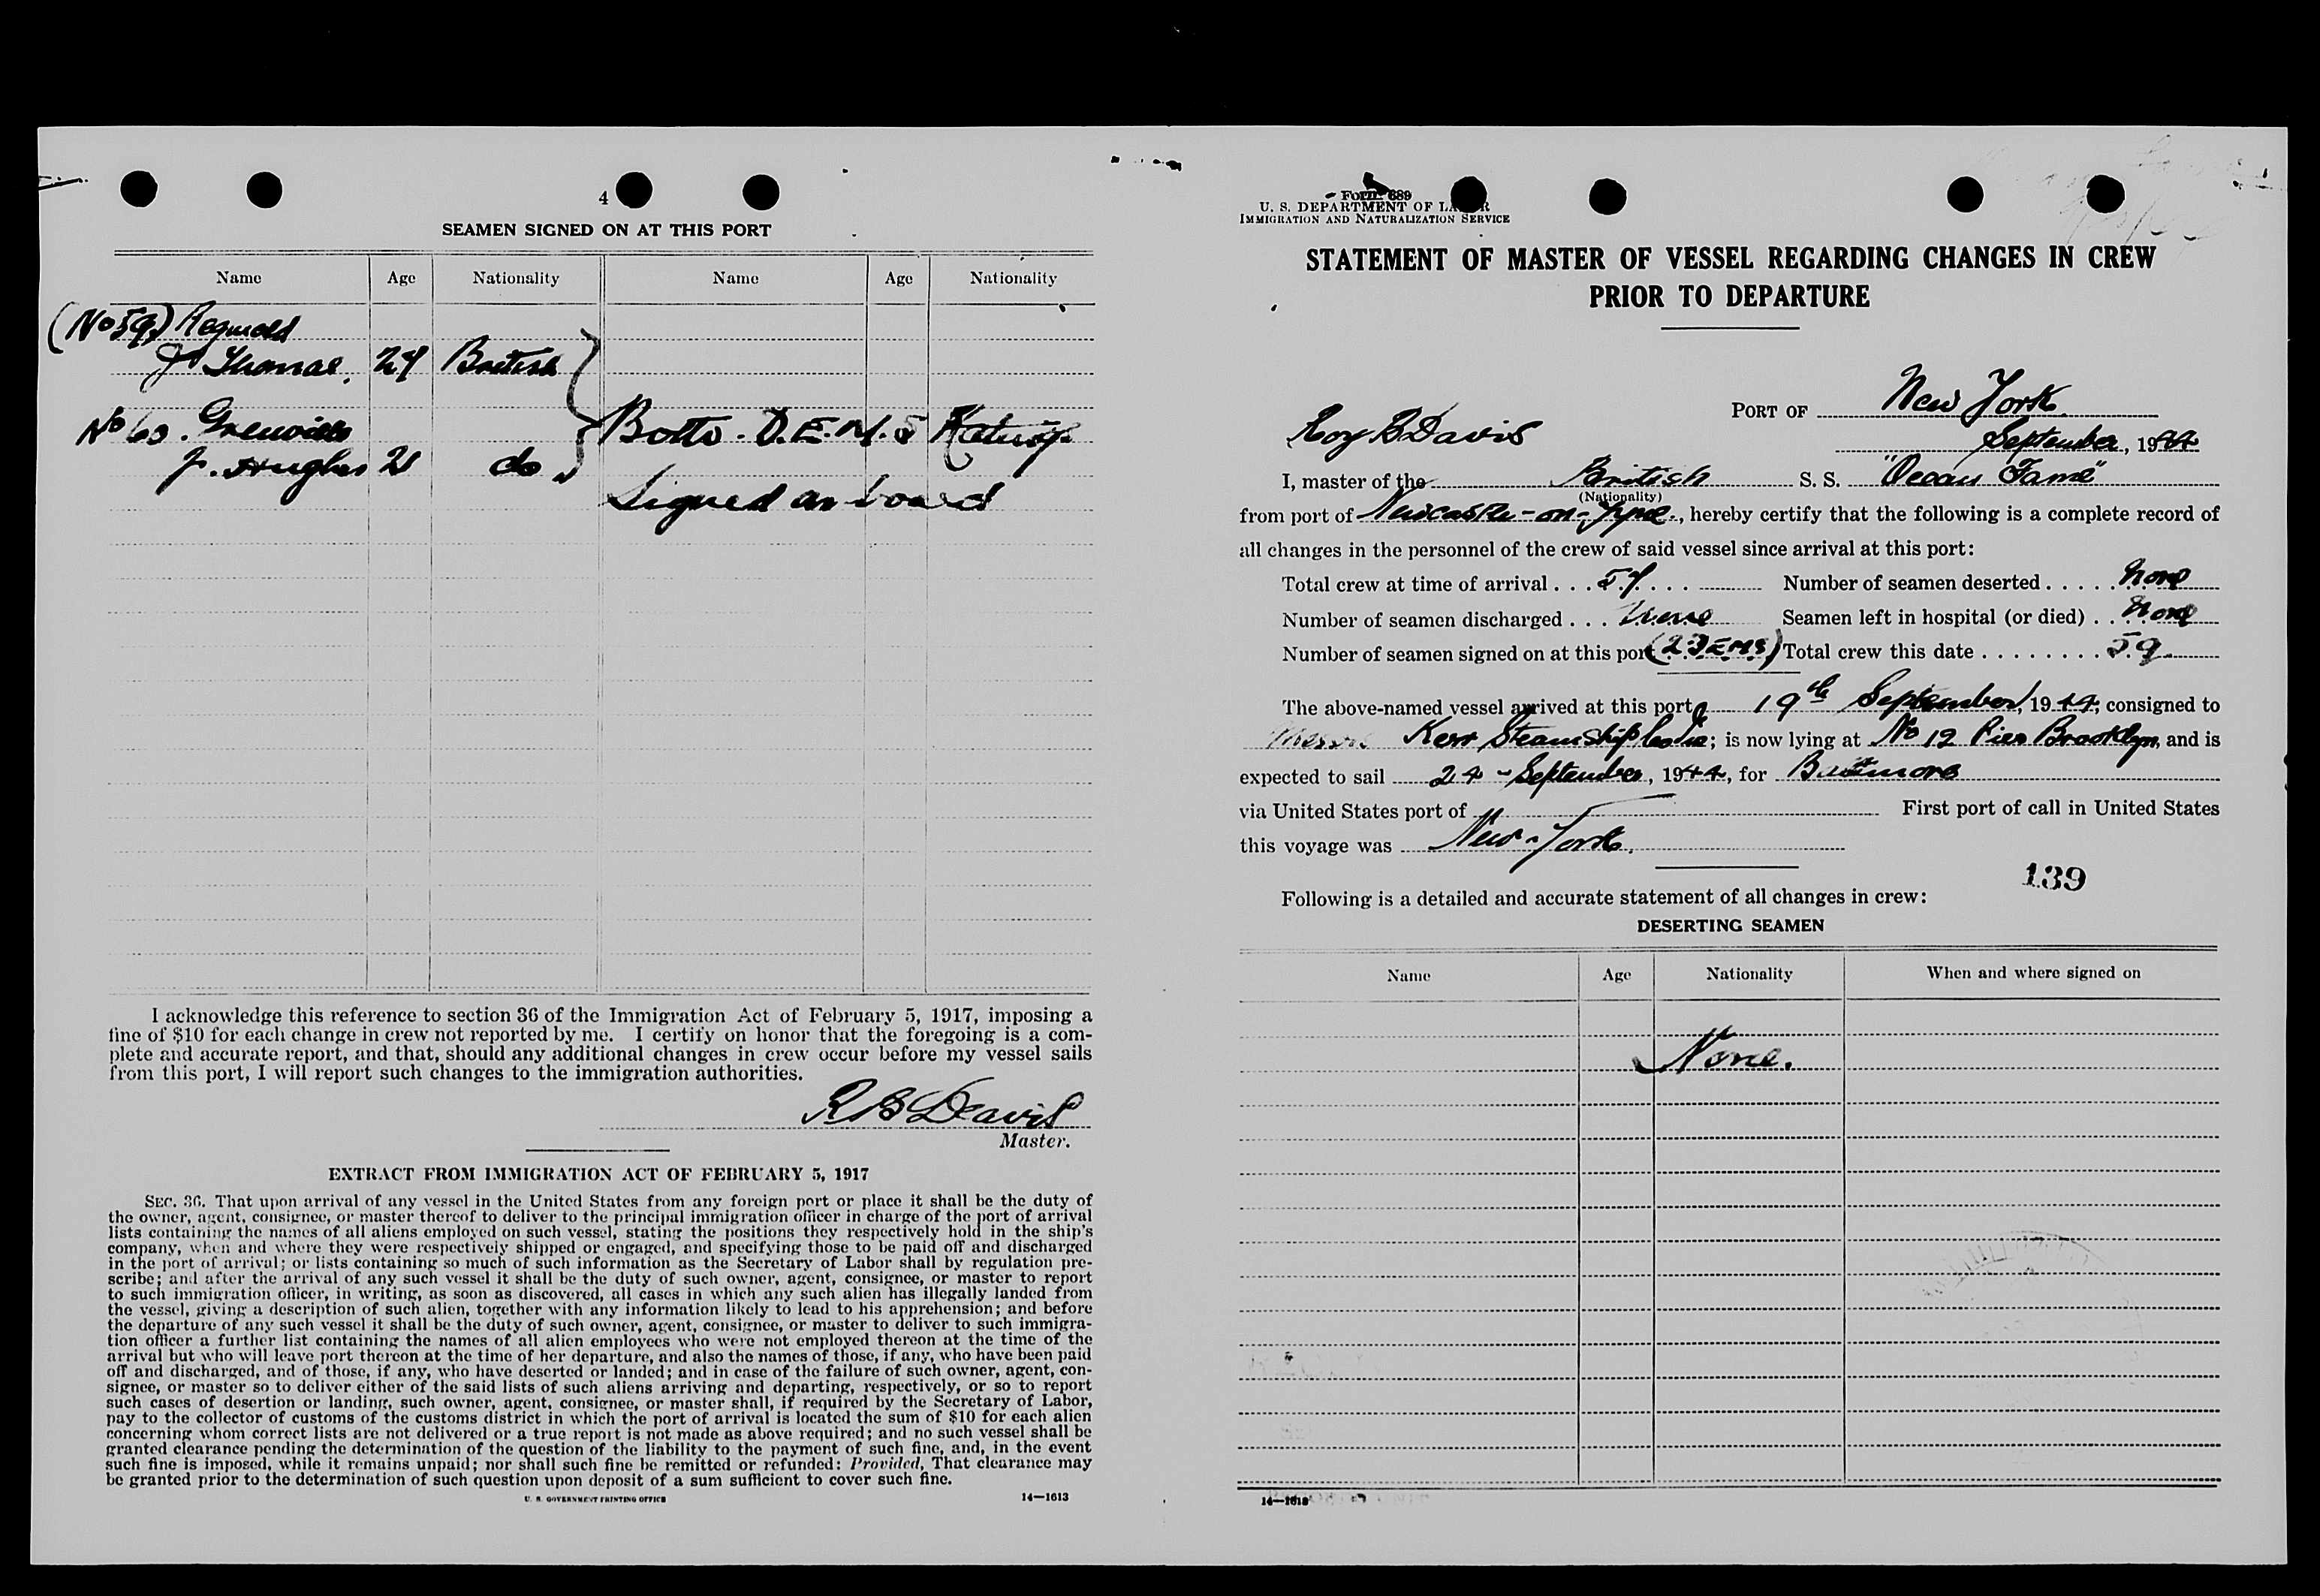 4
SEAMEN SIGNED ON AT THIS PORT
Name Age Nationality Name Age Nationality
(No 59) Reginald
J Thomas. 24 British
No 60. Grenville
J. Hughes 21 do
Both D.E.M.S Ratings
Signed on board
I acknowledge this reference to section 36 of the Immigration Act of February 5, 1917, imposing a
fine of $10 for each change in crew not reported by me. I certify on honor that the foregoing is a com-
plete and accurate report, and that, should any additional changes in crew occur before my vessel sails
from this port, I will report such changes to the immigration authorities.
R B Davis
Master.
EXTRACT FROM IMMIGRATION ACT OF FEBRUARY 5, 1917
SEC. 36. That upon arrival of any vessel in the United States from any foreign port or place it shall be the duty of
the owner, agent, consignee, or master thereof to deliver to the principal immigration officer in charge of the port of arrival
lists containing the names of all aliens employed on such vessel, stating the positions they respectively hold in the ship's
company, when and where they were respectively shipped or engaged, and specifying those to be paid off and discharged
in the port of arrival; or lists containing so much of such information as the Secretary of Labor shall by regulation pre-
scribe; and after the arrival of any such vessel it shall be the duty of such owner, agent, consignee, or master to report
to such immigration officer, in writing, as soon as discovered, all cases in which any such alien has illegally landed from
the vessel, giving a description of such alien, together with any information likely to lead to his apprehension; and before
the departure of any such vessel it shall be the duty of such owner, agent, consignee, or master to deliver to such immigra-
tion officer a further list containing the names of all alien employees who were not employed thereon at the time of the
arrival but who will leave port thereon at the time of her departure, and also the names of those, if any, who have been paid
off and discharged, and of those, if any, who have deserted or landed; and in case of the failure of such owner, agent, con-
signee, or master so to deliver either of the said lists of such aliens arriving and departing, respectively, or so to report
such cases of desertion or landing, such owner, agent, consignee, or master shall, if required by the Secretary of Labor,
pay to the collector of customs of the customs district in which the port of arrival is located the sum of $10 for each alien
concerning whom correct lists are not delivered or a true report is not made as above required; and no such vessel shall be
granted clearance pending the determination of the question of the liability to the payment of such fine, and, in the event
such fine is imposed, while it remains unpaid; nor shall such fine be remitted or refunded: Provided, That clearance may
be granted prior to the determination of such question upon deposit of a sum sufficient to cover such fine.
U. S. GOVERNMENT PRINTING OFFICE 14—1613
Form 689
U. S. DEPARTMENT OF LABOR
IMMIGRATION AND NATURALIZATION SERVICE
STATEMENT OF MASTER OF VESSEL REGARDING CHANGES IN CREW
PRIOR TO DEPARTURE
PORT OF New York.
Roy B Davis September, 1944
I, master of the British S. S. "Ocean Fame"
(Nationality)
from port of Newcastle-on-Tyne., hereby certify that the following is a complete record of
all changes in the personnel of the crew of said vessel since arrival at this port:
Total crew at time of arrival . . . 57 . . . . Number of seamen deserted . . . . . None
Number of seamen discharged . . . None Seamen left in hospital (or died) . . None
Number of seamen signed on at this port (2 DEMS) Total crew this date . . . . . . . . 59
The above-named vessel arrived at this port 19th September, 1944, consigned to
Messrs Kerr Steamship Co Inc; is now lying at No 12 Pier Brooklyn, and is
expected to sail 24 - September, 1944, for Baltimore
via United States port of First port of call in United States
this voyage was New-York.
139
Following is a detailed and accurate statement of all changes in crew:
DESERTING SEAMEN
Name Age Nationality When and where signed on
None.
14—1613